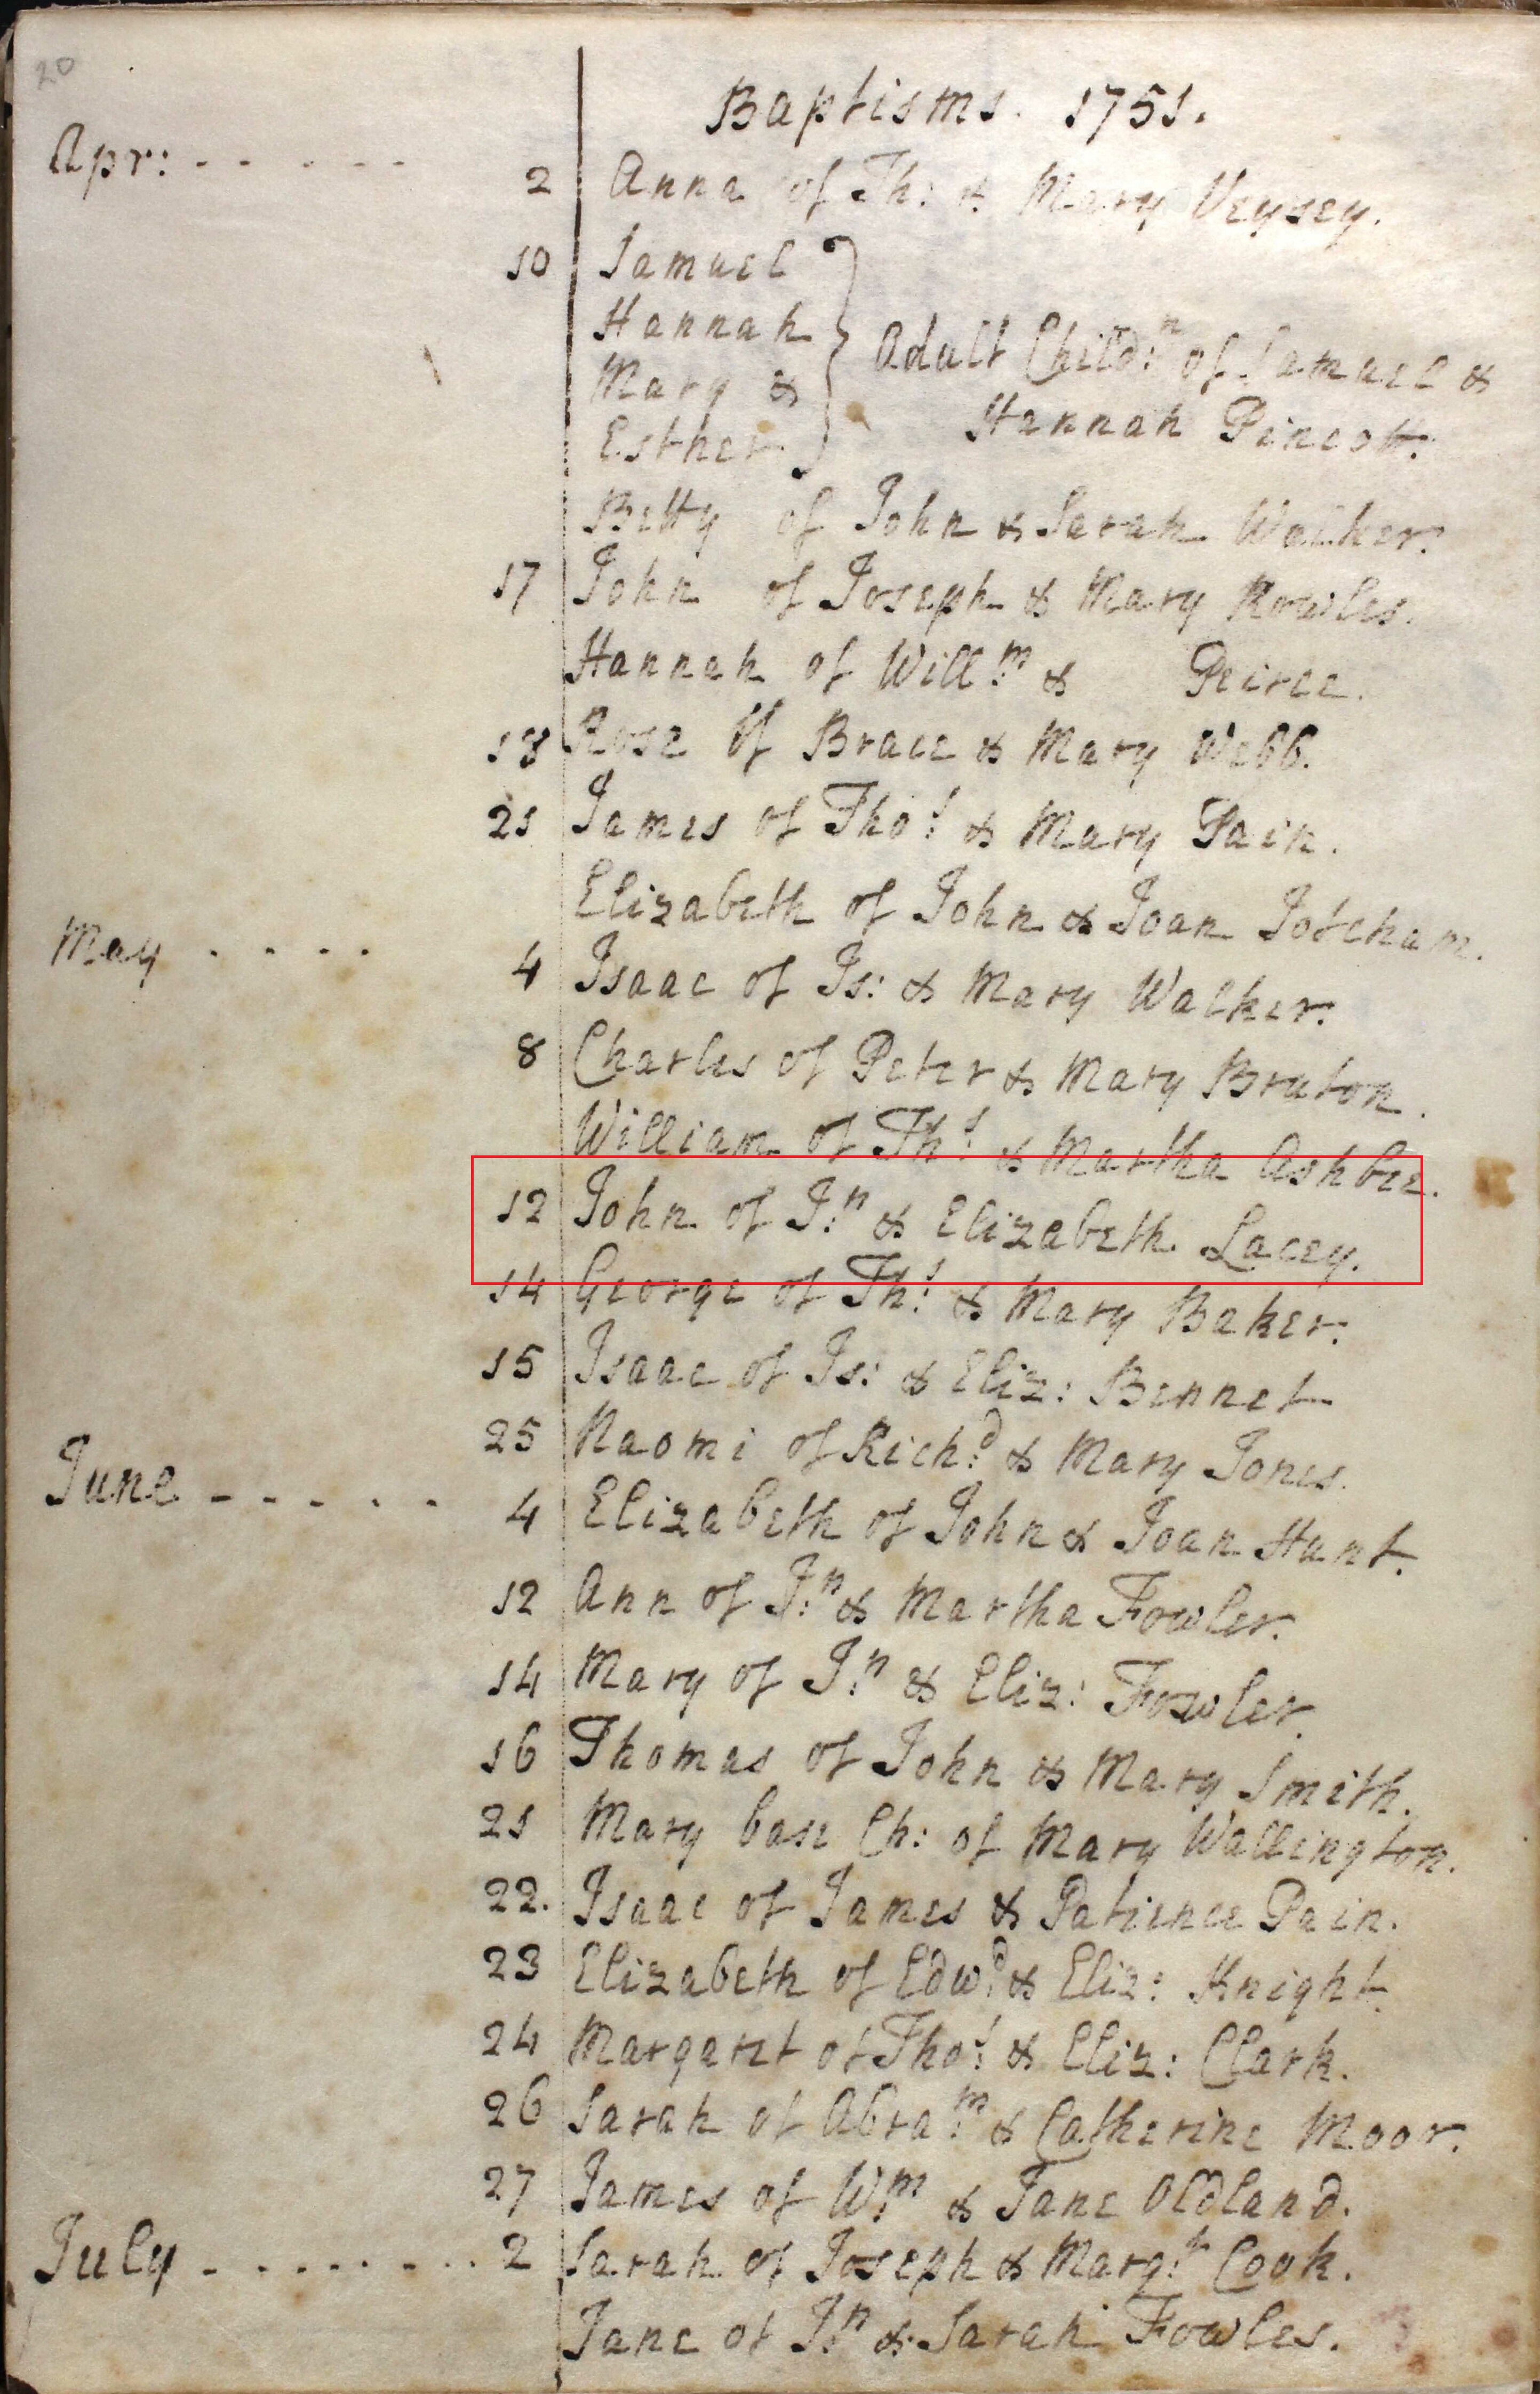 20
Baptisms. 1751.
Apr: - - - - - 2 Anna of Th: & Mary Veysey.
10 Samuel
Hannah
Mary &
Esther
Adult Child:n of Samuel &
Hannah Pincott.
Betty of John & Sarah Walker.
17 John of Joseph & Mary Rowles.
Hannah of Will:m & Peirce.
18 Rose of Brace & Mary Webb.
21 James of Tho:s & Mary Pain.
Elizabeth of John & Joan Jotcham.
May - - - - 4 Isaac of Is: & Mary Walker.
8 Charles of Peter & Mary Bruton.
William of Th:s & Martha Ashbee.
12 John of J:n & Elizabeth Lacey.
14 George of Th:s & Mary Baker.
15 Isaac of Is: & Eliz: Bennet
25 Naomi of Rich:d & Mary Jones.
June - - - - - 4 Elizabeth of John & Joan Hunt.
12 Ann of J:n & Martha Fowler.
14 Mary of J:n & Eliz: Fowler.
16 Thomas of John & Mary Smith.
21 Mary base Ch: of Mary Wallington.
22. Isaac of James & Patience Pain.
23 Elizabeth of Edw:d & Eliz: Knight.
24 Margaret of Tho:s & Eliz: Clark.
26 Sarah of Abra:m & Catherine Moor.
27 James of W:m & Jane Oldland.
July - - - - - - - 2 Sarah of Joseph & Marg:t Cook.
Jane of J:n & Sarah Fowles.